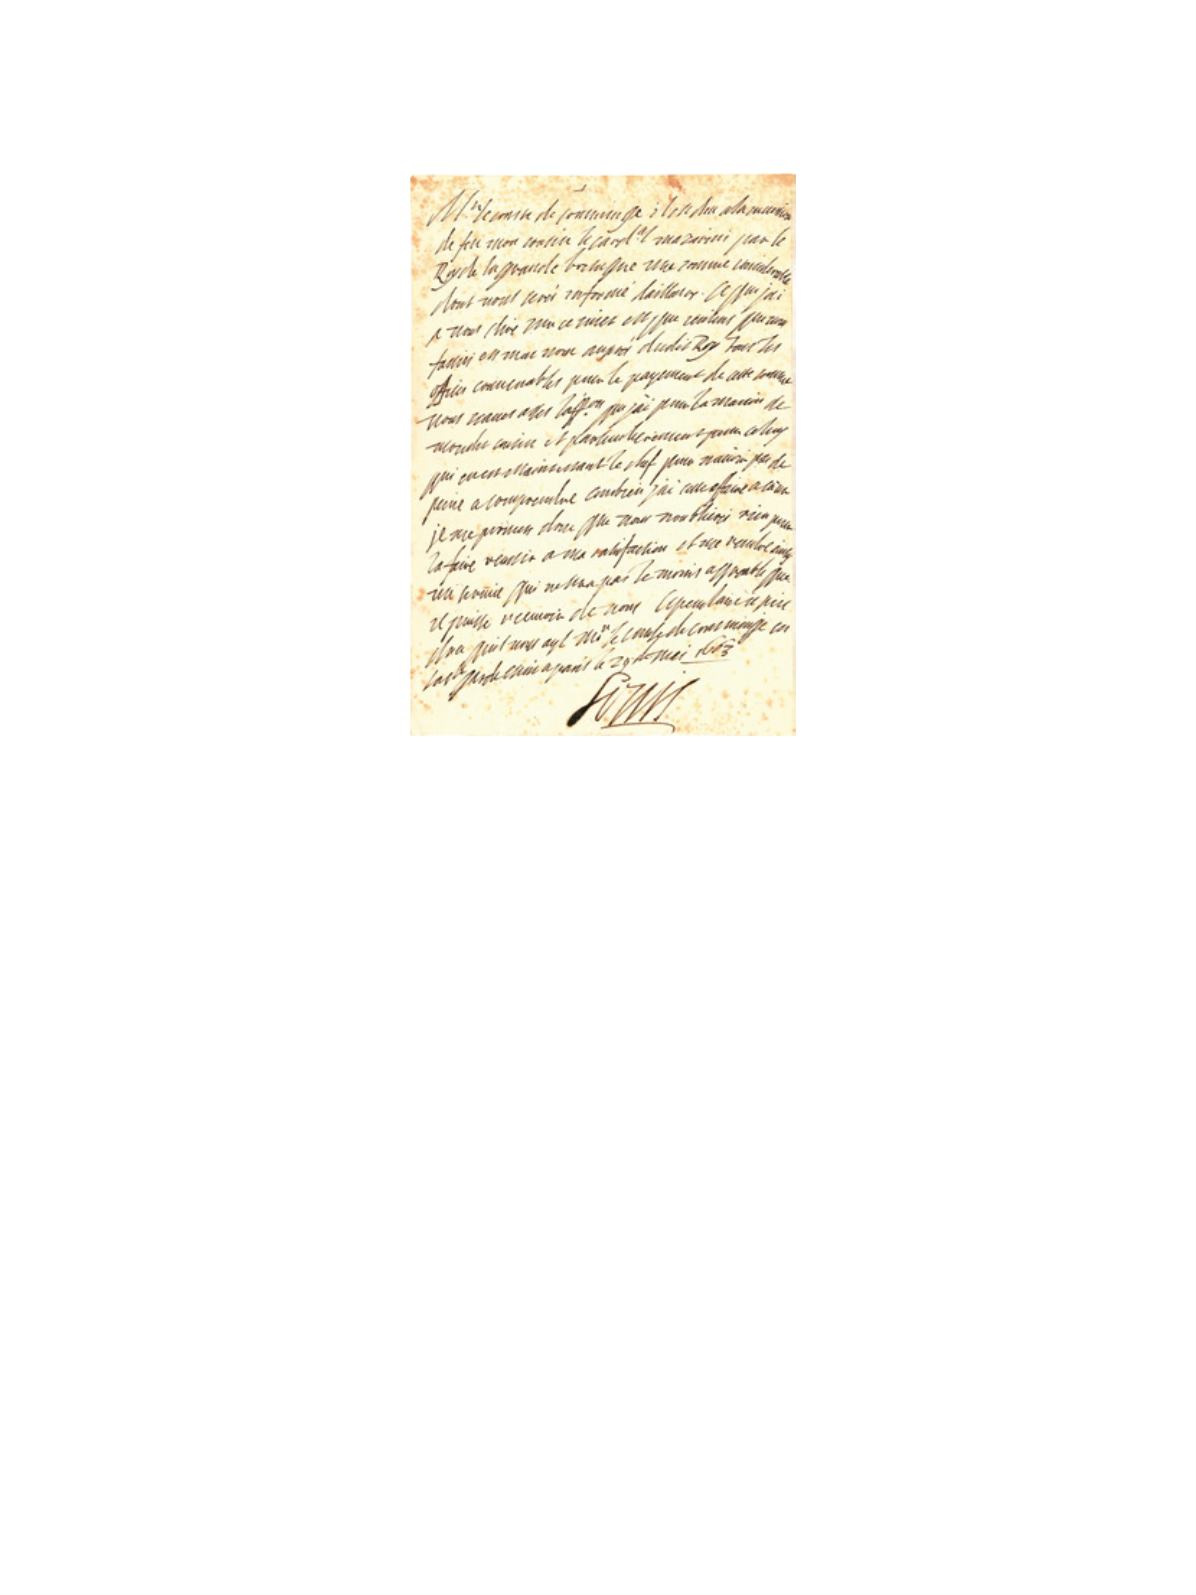 Mr le comte de comminge il est deu a la succession
de feu mon cousin le card.al mazarini par le
Roy de la grande bretagne une somme considerable
dont vous serés informé dailleurs. Ce que jai
a vous dire sur ce sujet est que je que vous
fassiés en mon nom auprés dudit Roy tous les
offices convenables pour le payement de cette somme
vous scaves asses laff.on que jai pour la maison de
mondit cousin et particulierement pour celuy
qui en est maintenant le chef pour navoir pas de
peine a comprendre combien jai cette affaire a coeur
je me promets donc que vous noublierés rien pour
la faire reussir a ma satisfaction et me rendre
un service qui ne sera pas le moins agreable que
je puisse recevoir de vous Cependant je prie
dieu quil vous ayt Mr le comte de comminge en
sa s.te garde escrit a paris le 29 de mai 1663
Louis